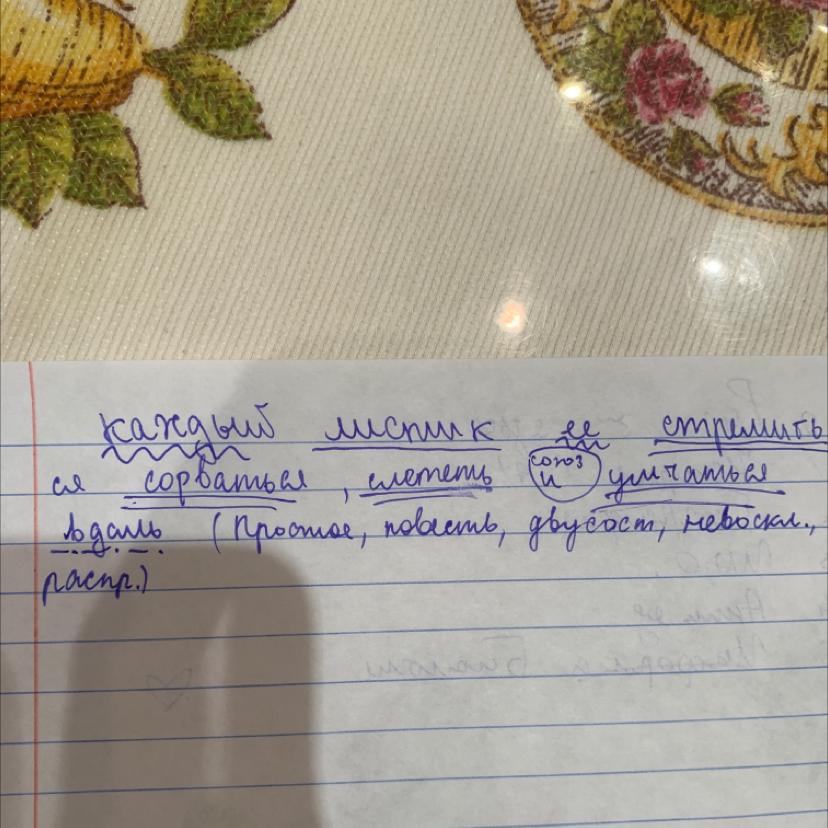 каждый листик ее стремить
ся сорваться, слететь союз и умчаться
вдаль (простое, повеств, двусост, невоскл.,
распр.)